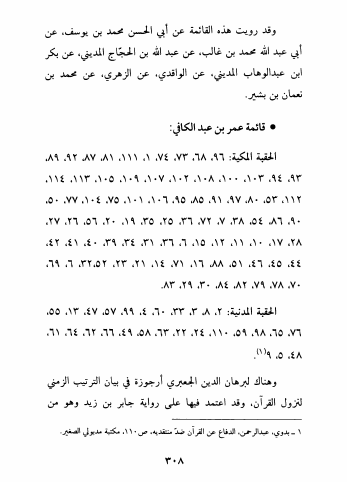 وقد رويت هذه القائمة عن أبي الحسن محمد بن يوسف، عن
أبي عبد الله محمد بن غالب، عن عبد الله بن الحجّاج المديني، عن بكر
ابن عبدالوهاب المديني، عن الواقدي، عن الزهري، عن محمد بن
نعمان بن بشير.
• قائمة عمر بن عبد الكافي:
الحقبة المكية: ٩٦، ٦٨، ٧٣، ٧٤، ١، ١١١، ٨١، ٨٧، ٩٢، ٨٩،
٩٣، ٩٤، ١٠٣، ١٠٠، ١٠٨، ١٠٢، ١٠٧، ١٠٩، ١٠٥، ١١٣، ١١٤،
١١٢، ٥٣، ٨٠، ٩٧، ٩١، ٨٥، ٩٥، ١٠٦، ١٠١، ٧٥، ١٠٤، ٧٧، ٥٠،
٩٠، ٨٦، ٥٤، ٣٨، ٧، ٧٢، ٣٦، ٢٥، ٣٥، ١٩، ٢٠، ٥٦، ٢٦، ٢٧،
٢٨، ١٧، ١٠، ١١، ١٢، ١٥، ٦، ٣٦، ٣١، ٣٤، ٣٩، ٤٠، ٤١، ٤٢،
٤٤، ٤٥، ٤٦، ٥١، ٨٨، ١٦، ٧١، ١٤، ٢١، ٢٣، ٣٢،٥٢، ٦، ٦٩،
٧٠، ٧٨، ٧٩، ٨٢، ٨٤، ٣٠، ٢٩، ٨٣.
الحقبة المدنية: ٢، ٨، ٣، ٣٣، ٦٠، ٤، ٩٩، ٥٧، ٤٧، ١٣، ٥٥،
٧٦، ٦٥، ٩٨، ٥٩، ١١٠، ٢٤، ٢٢، ٦٣، ٥٨، ٤٩، ٦٦، ٦٢، ٦٤، ٦١،
٤٨، ٥، ٩(١).
وهناك لبرهان الدين الجعبري أرجوزة في بيان الترتيب الزمني
لنزول القرآن، وقد اعتمد فيها على رواية جابر بن زيد وهو من
١ ـ بدوي، عبدالرحمن، الدفاع عن القرآن ضدّ منتقديه، ص١١٠، مكتبة مدبولي الصغير.
٣٠٨